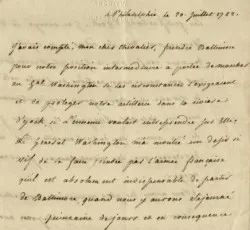 Philadelphie le 20 Juillet 1782.
J'avais compté, mon cher chevalier, prendre Baltimore
pour notre position intermediaire à portée de marcher
au Gal. Washington si les circonstances l'exigeaient
et de proteger notre artillerie dans la riviere
d'york, si l'ennemi voulait entreprendre sur Elle.
le général Washington m'a montré un desir si
vif de se faire joindre par l'armée française
qu'il est absolument indispensable de partir
de Baltimore, quand nous y aurons séjourné
une quinzaine de jours et en consequence